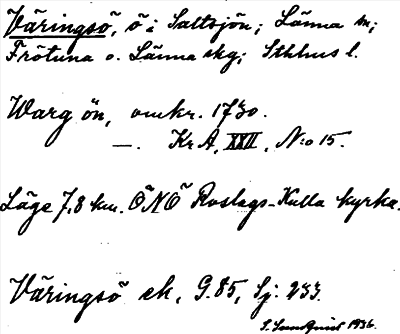 Väringsö, ö i Saltsjön; Länna sn;
Frötuna o. Länna skg; Sthlms l.
Warg ön, omkr. 1730.
—. Kr A, XXII, N:o 15.
Läge 7,8 km. ÖNÖ Roslags-Kulla kyrka.
Väringsö ek, G. 85, Sj: 233.
S. Lundquist 1936.